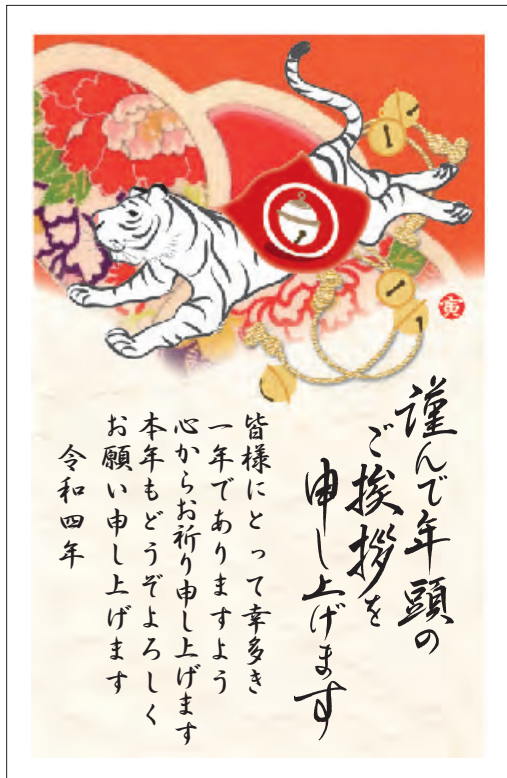 寅
謹んで年頭の
ご挨拶を
申し上げます
皆様にとって幸多き
一年でありますよう
心からお祈り申し上げます
本年もどうぞよろしく
お願い申し上げます
令和四年